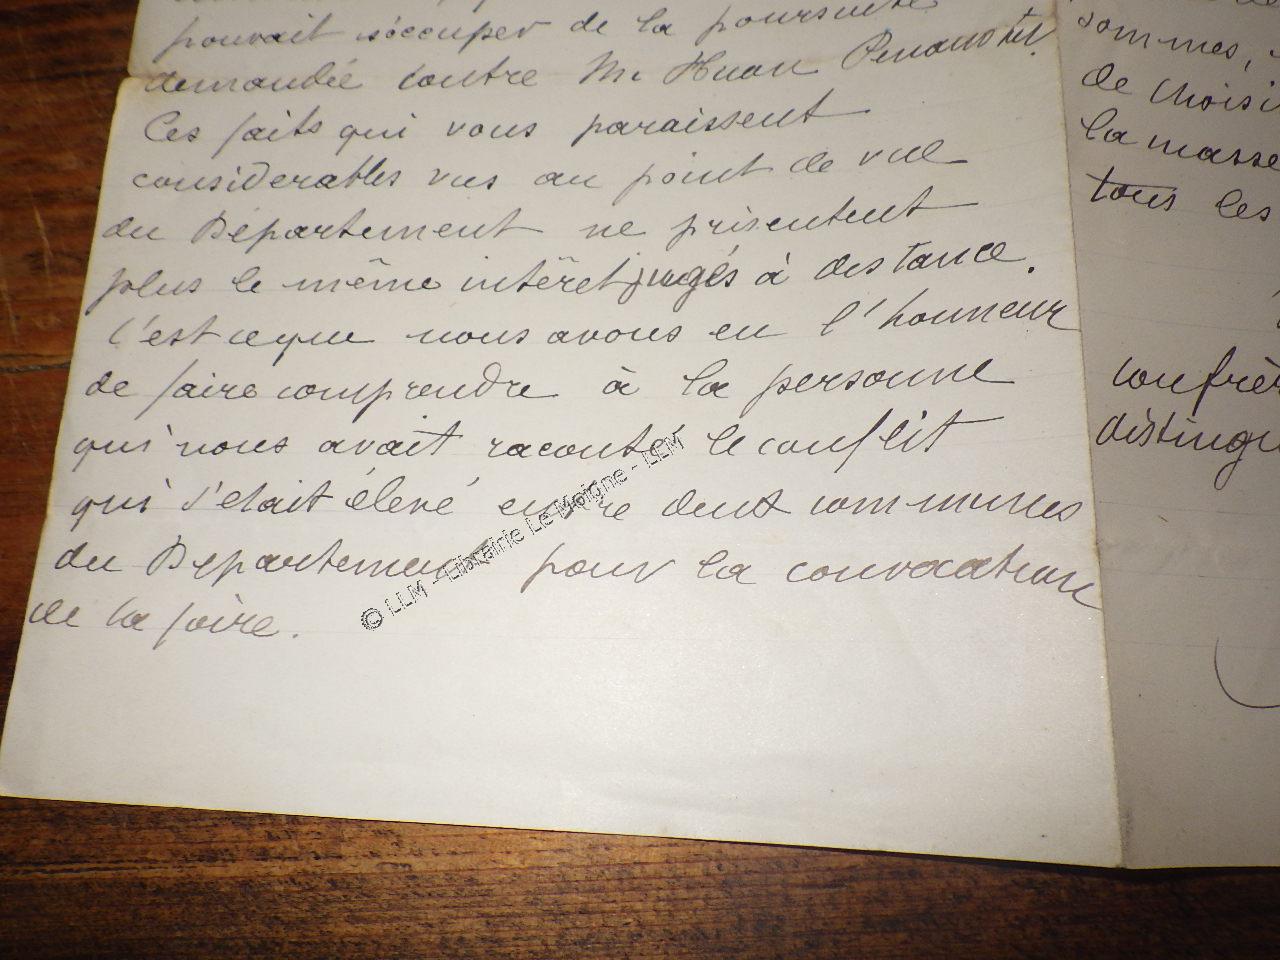 pouvait s'occuper de la poursuite
demandée contre Mr Huon Penanster
Ces faits qui vous paraissent
considerables vus au point de vue
du Département ne présentent
plus le même intérêt jugés à distance.
C'est ce que nous avons eu l'honneur
de faire comprendre à la personne
qui nous avait raconté le conflit
qui s'était élevé entre deux communes
du Département pour la convocation
de la foire.
© LLM - Librairie Le Moigne - LLM
sommes,
de choisi
la masse
tous les
confrèr
distingu